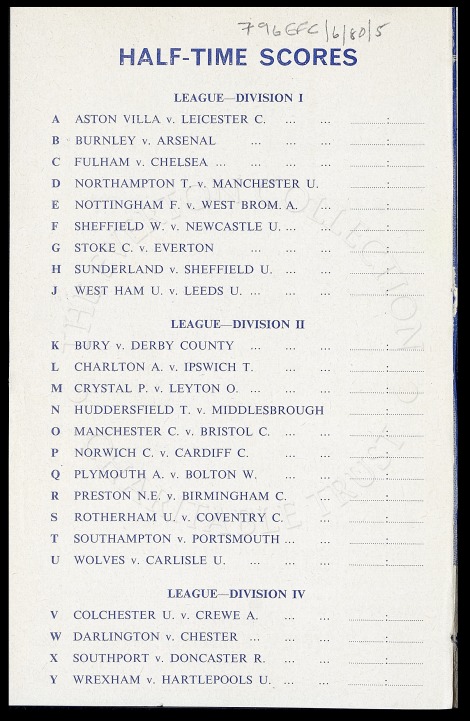 796EFC/6/80/5
HALF-TIME SCORES
LEAGUE—DIVISION I
A ASTON VILLA v. LEICESTER C. ... ... ........:........
B BURNLEY v. ARSENAL ... ... ... ........:........
C FULHAM v. CHELSEA ... ... ... ........:........
D NORTHAMPTON T. v. MANCHESTER U. ........:........
E NOTTINGHAM F. v. WEST BROM. A. ... ........:........
F SHEFFIELD W. v. NEWCASTLE U. ... ... ........:........
G STOKE C. v. EVERTON ... ... ... ........:........
H SUNDERLAND v. SHEFFIELD U. ... ... ........:........
J WEST HAM U. v. LEEDS U. ... ... ... ........:........
LEAGUE—DIVISION II
K BURY v. DERBY COUNTY ... ... ... ........:........
L CHARLTON A. v. IPSWICH T. ... ... ........:........
M CRYSTAL P. v. LEYTON O. ... ... ... ........:........
N HUDDERSFIELD T. v. MIDDLESBROUGH ........:........
O MANCHESTER C. v. BRISTOL C. ... ... ........:........
P NORWICH C. v. CARDIFF C. ... ... ........:........
Q PLYMOUTH A. v. BOLTON W. ... ... ........:........
R PRESTON N.E. v. BIRMINGHAM C. ... ........:........
S ROTHERHAM U. v. COVENTRY C. ... ........:........
T SOUTHAMPTON v. PORTSMOUTH ... ... ........:........
U WOLVES v. CARLISLE U. ... ... ... ........:........
LEAGUE—DIVISION IV
V COLCHESTER U. v. CREWE A. ... ... ........:........
W DARLINGTON v. CHESTER ... ... ... ........:........
X SOUTHPORT v. DONCASTER R. ... ... ........:........
Y WREXHAM v. HARTLEPOOLS U. ... ... ........:........